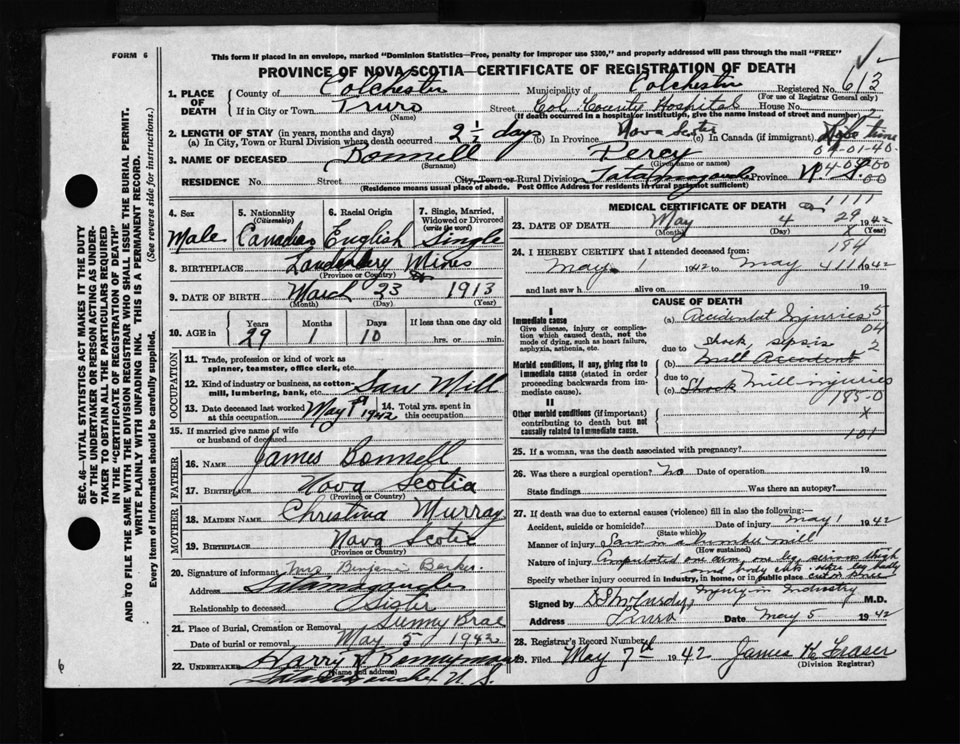 FORM 6
This form if placed in an envelope, marked "Dominion Statistics—Free, penalty for improper use $300," and properly addressed will pass through the mail "FREE"
PROVINCE OF NOVA SCOTIA—CERTIFICATE OF REGISTRATION OF DEATH
1. PLACE OF DEATH County of Colchester Municipality of Colchester Registered No. 613
(For use of Registrar General only)
If in City or Town Truro Street Col. County Hospital House No.
(Name) (If death occurred in a hospital or institution, give the name instead of street and number)
2. LENGTH OF STAY (in years, months and days)
(a) In City, Town or Rural Division where death occurred 2½ days (b) In Province Nova Scotia (c) In Canada (if immigrant) Life time
04-01-40-
3. NAME OF DECEASED Bonnell Percy
(Surname) (Given name or names)
RESIDENCE No. Street City, Town or Rural Division Tatamagouche Province N. S.
(Residence means usual place of abode. Post Office Address for residents in rural parts not sufficient)
4. Sex Male
5. Nationality (Citizenship) Canadian
6. Racial Origin English
7. Single, Married, Widowed or Divorced (write the word) Single
8. BIRTHPLACE Londonderry Mines
(Province or Country)
9. DATE OF BIRTH March 23 1913
(Month) (Day) (Year)
10. AGE in Years 29 Months 1 Days 10 If less than one day old hrs. or min.
OCCUPATION
11. Trade, profession or kind of work as spinner, teamster, office clerk, etc.
12. Kind of industry or business, as cotton-mill, lumbering, bank, etc. Saw Mill
13. Date deceased last worked at this occupation May 1st 1942 14. Total yrs. spent in this occupation
15. If married give name of wife or husband of deceased
FATHER
16. NAME James Bonnell
17. BIRTHPLACE Nova Scotia
(Province or Country)
MOTHER
18. MAIDEN NAME Christina Murray
19. BIRTHPLACE Nova Scotia
(Province or Country)
20. Signature of informant Mrs
Address Tatamagouche
Relationship to deceased Sister
21. Place of Burial, Cremation or Removal Sunny Brae
Date of burial or removal May 5 1942
22. UNDERTAKER Harry
(Name and address)
MEDICAL CERTIFICATE OF DEATH
23. DATE OF DEATH May 4 1942
(Month) (Day) (Year)
24. I HEREBY CERTIFY that I attended deceased from:
May 1 1942 to May 1942
and last saw h alive on 19
CAUSE OF DEATH
I
Immediate cause
Give disease, injury or complication which caused death, not the mode of dying, such as heart failure, asphyxia, asthenia, etc.
(a) Accidental Injuries
due to shock, sepsis
Morbid conditions, if any, giving rise to immediate cause (stated in order proceeding backwards from immediate cause).
(b) Mill Accident
due to
(c) Shock mill injuries
185-0
II
Other morbid conditions (if important) contributing to death but not causally related to immediate cause.
X
101
25. If a woman, was the death associated with pregnancy?
26. Was there a surgical operation? no Date of operation 19
State findings Was there an autopsy?
27. If death was due to external causes (violence) fill in also the following:—
Accident, suicide or homicide? Date of injury May 1 1942
(State which)
Manner of injury Saw in a lumber mill
(How sustained)
Nature of injury Amputated one arm, one leg, serious thigh and body cuts
Specify whether injury occurred in industry, in home, or in public place
Injury in Industry
Signed by M.D.
Address Truro Date May 5 1942
28. Registrar's Record Number
29. Filed May 7th 1942 James H Fraser
(Division Registrar)
SEC. 46—VITAL STATISTICS ACT MAKES IT THE DUTY OF THE UNDERTAKER OR PERSON ACTING AS UNDERTAKER TO OBTAIN ALL THE PARTICULARS REQUIRED IN THE "CERTIFICATE OF REGISTRATION OF DEATH" AND TO FILE THE SAME WITH THE DIVISION REGISTRAR WHO SHALL ISSUE THE BURIAL PERMIT.
WRITE PLAINLY WITH UNFADING INK. THIS IS A PERMANENT RECORD.
Every item of information should be carefully supplied. (See reverse side for instructions.)
6